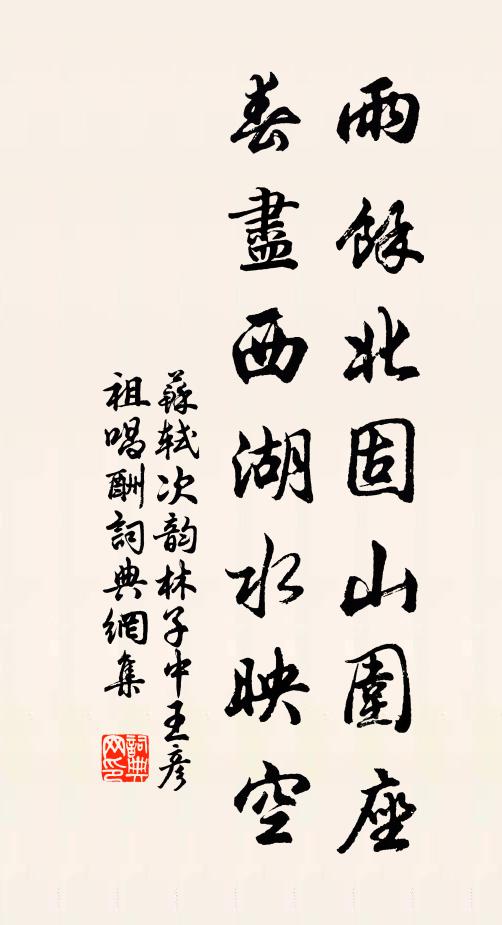 雨餘北固山圍座
春盡西湖水映空
蘇軾次韵林子中王彦
祖唱酬詞典網集
詞典網印